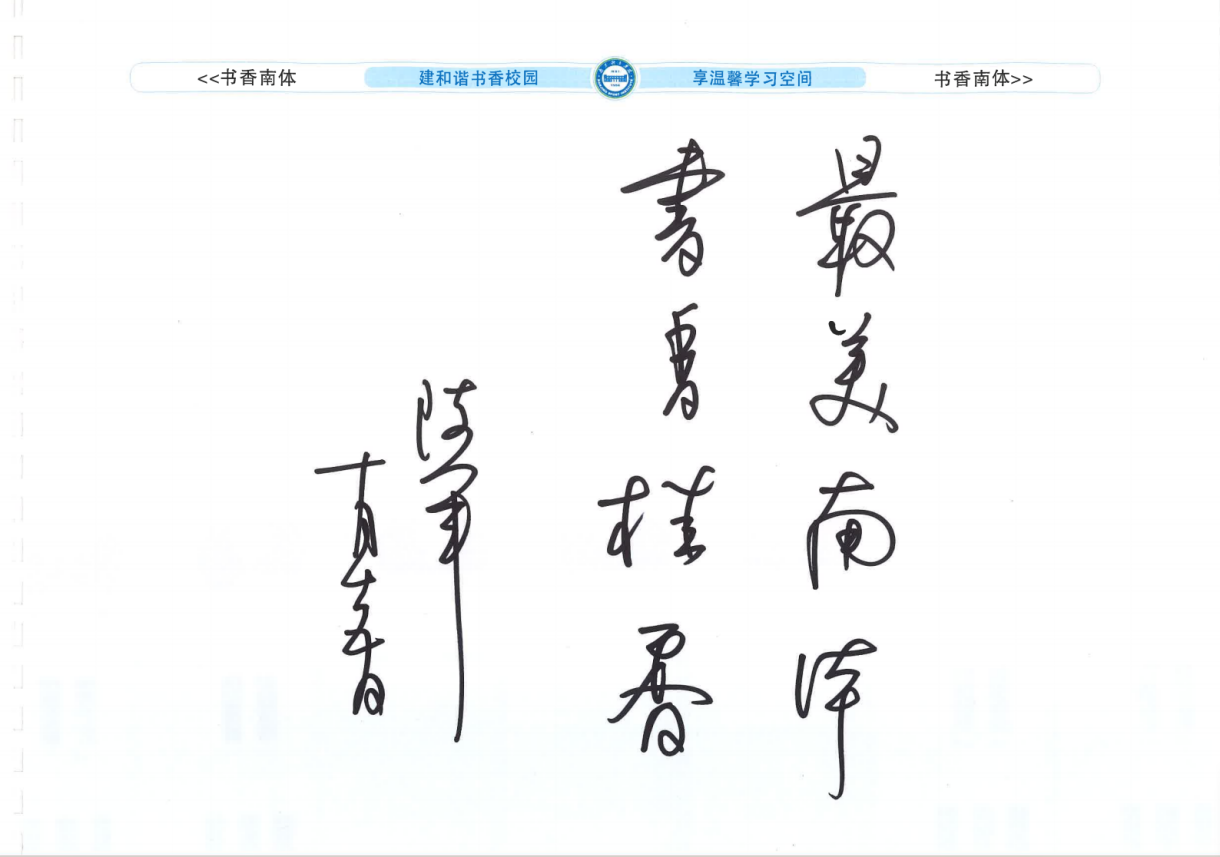 <<书香南体 建和谐书香校园 享温馨学习空间 书香南体>>
最美南体
書香桂香
十月十五日